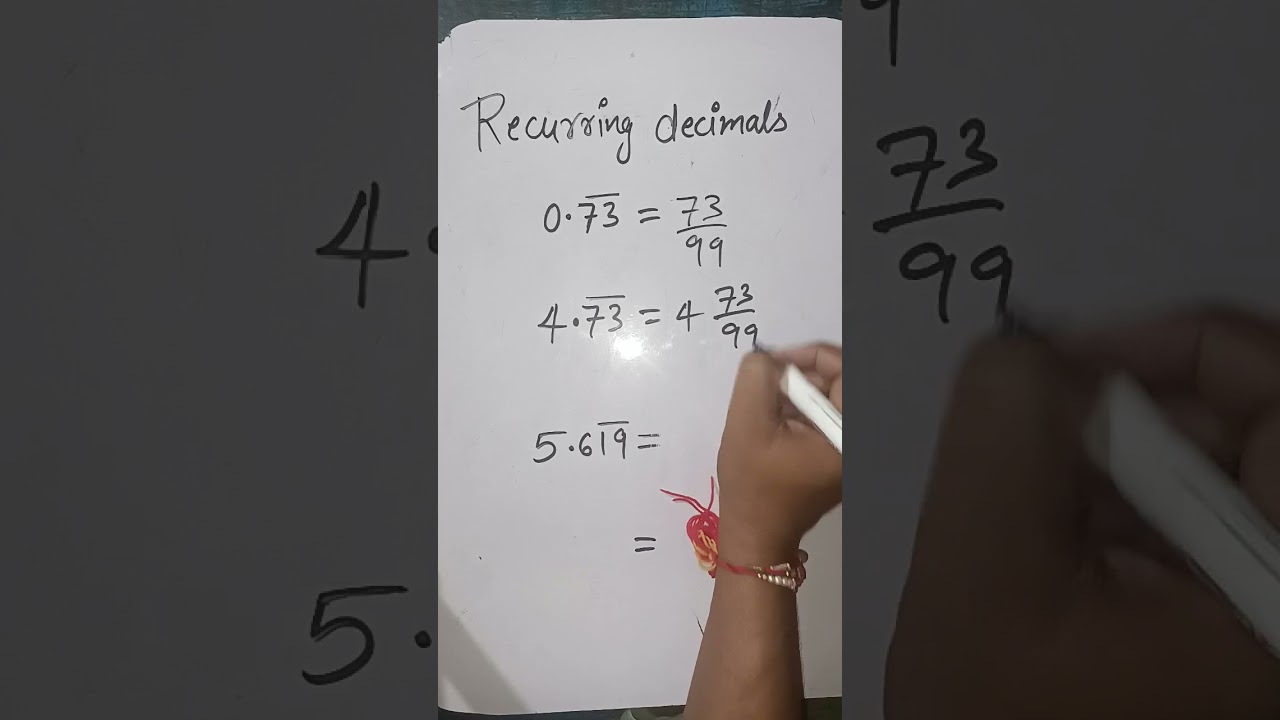 Recurring decimals
0.7̅3̅ = 73/99
4.7̅3̅ = 4 73/99
5.61̅9̅ =
=